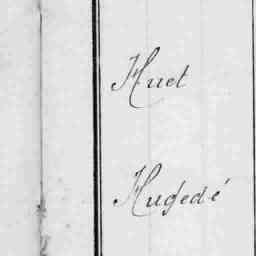 Huet
Hugedé